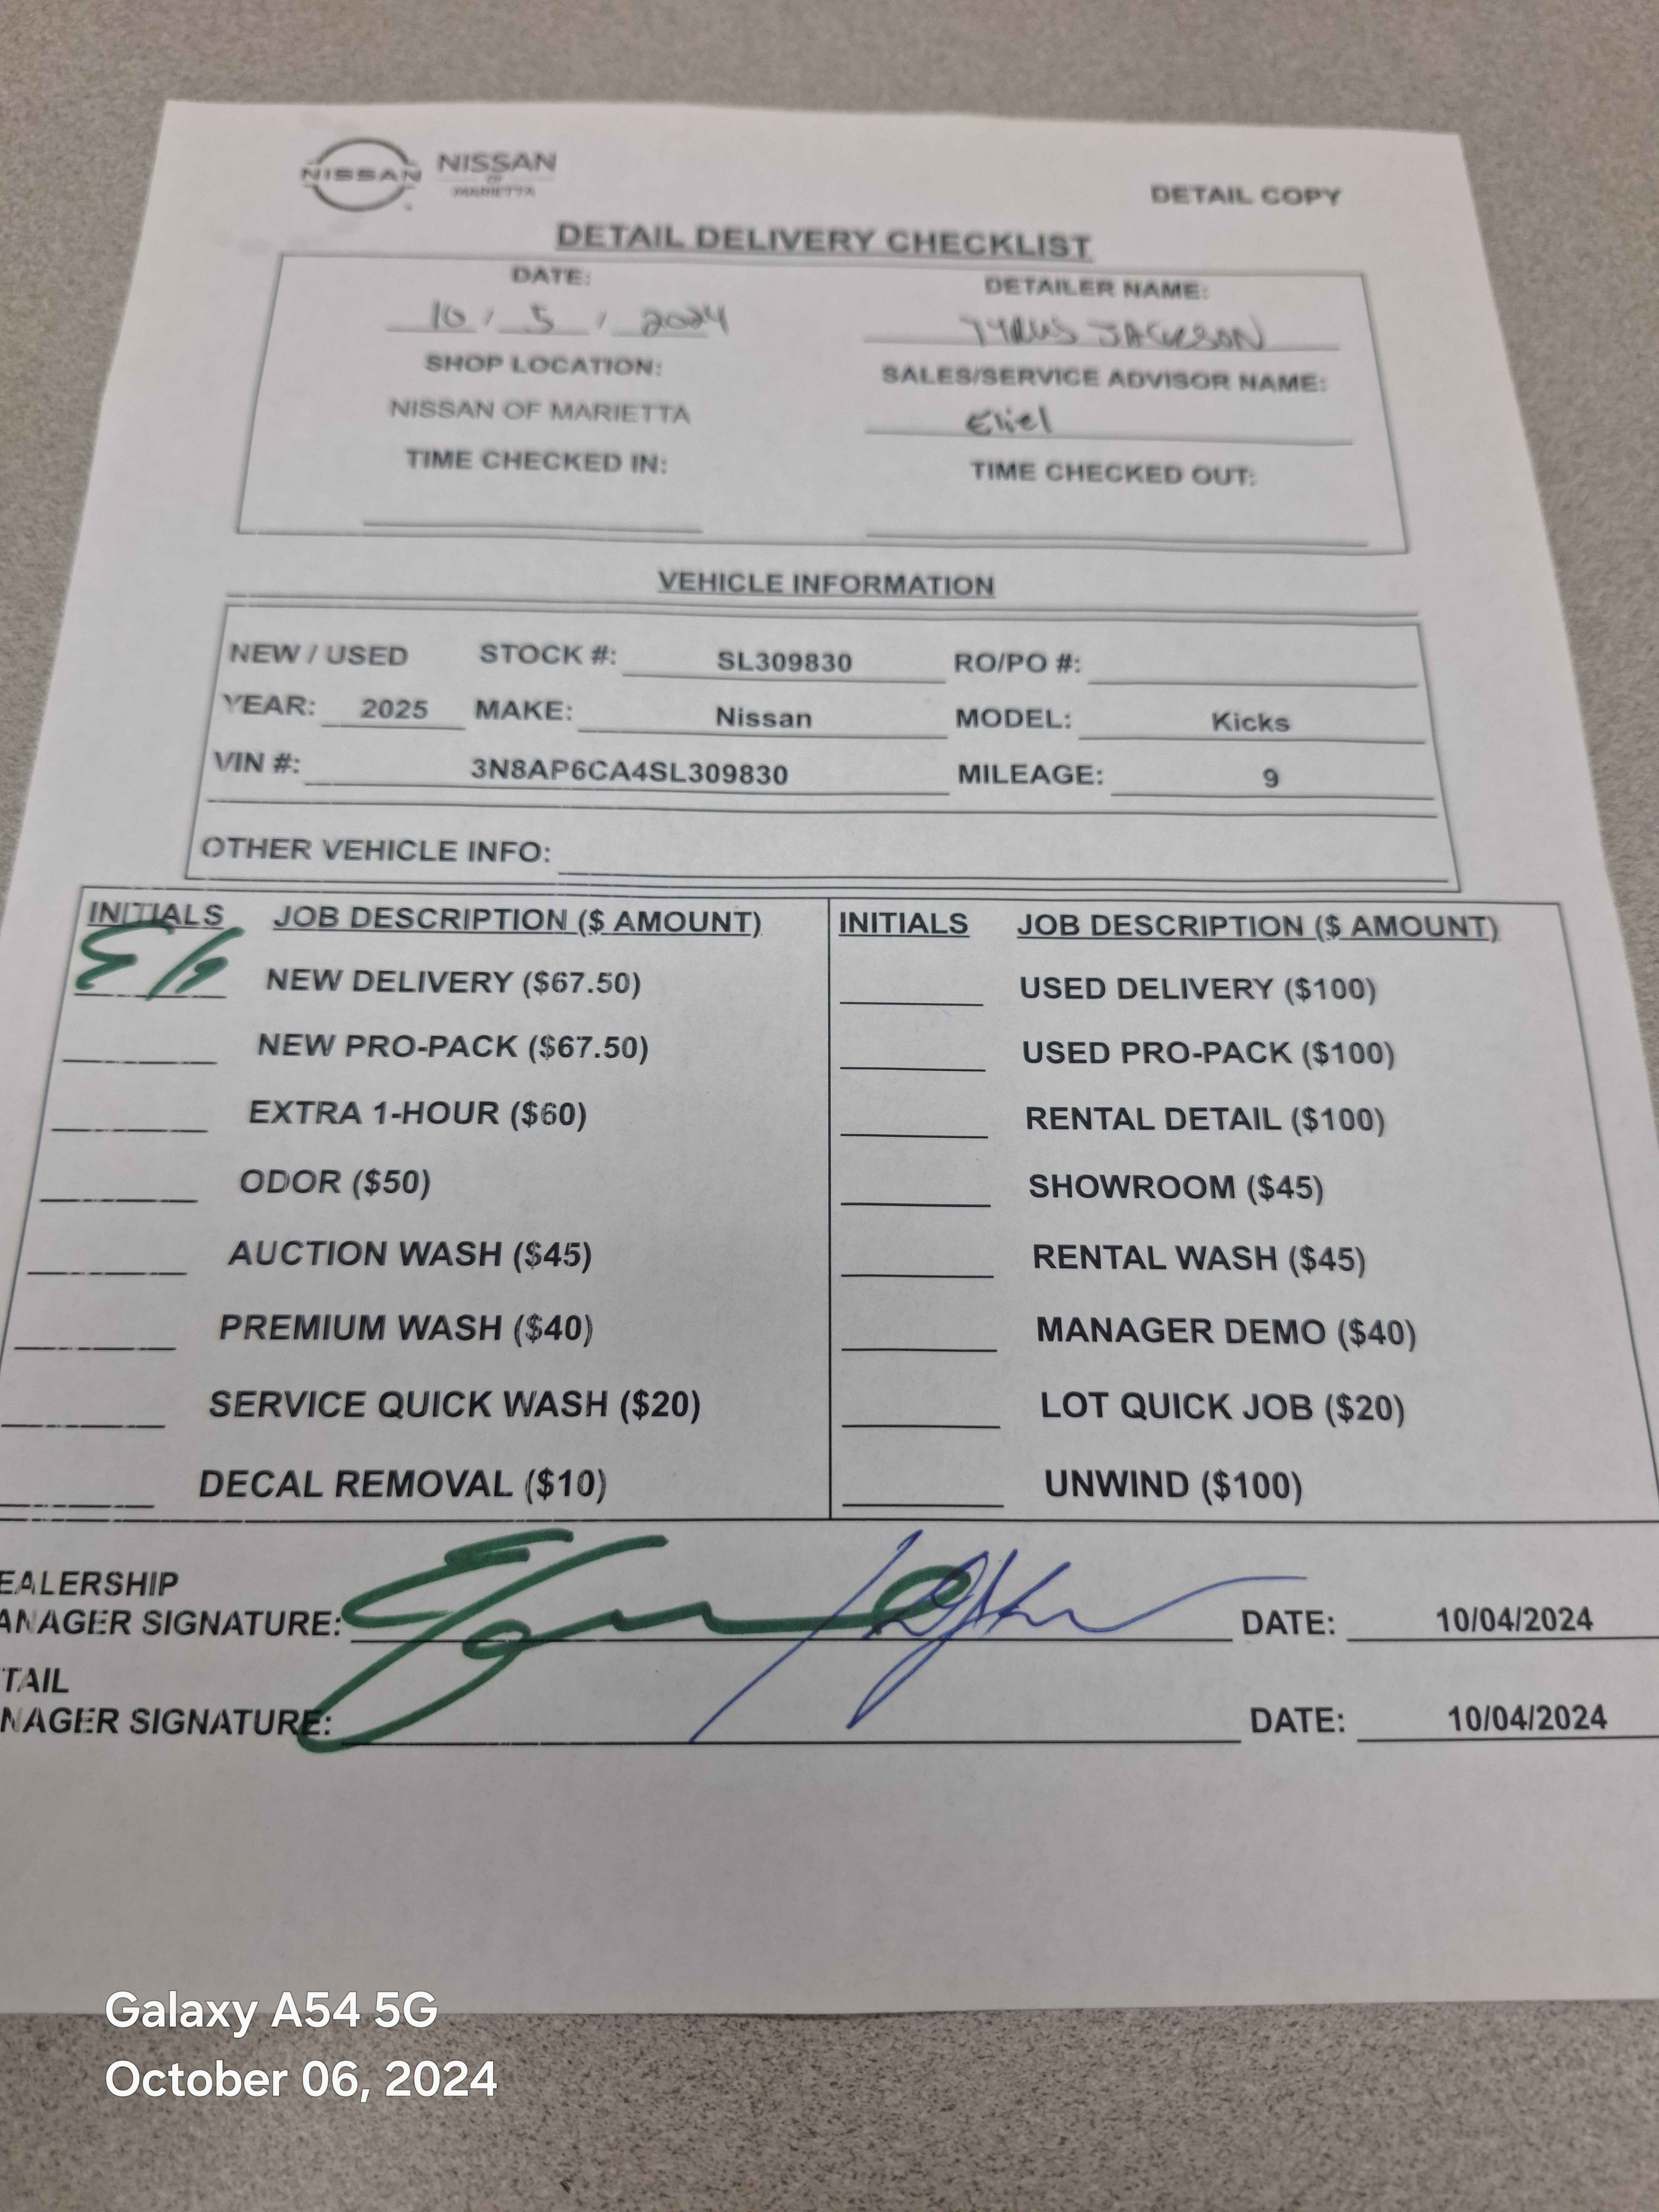 NISSAN
NISSAN
OF
MARIETTA
DETAIL COPY
DETAIL DELIVERY CHECKLIST
DATE: DETAILER NAME:
10 / 5 / 2024 TYRUS JACKSON
SHOP LOCATION: SALES/SERVICE ADVISOR NAME:
NISSAN OF MARIETTA Eliel
TIME CHECKED IN: TIME CHECKED OUT:
VEHICLE INFORMATION
NEW / USED STOCK #: SL309830 RO/PO #:
YEAR: 2025 MAKE: Nissan MODEL: Kicks
VIN #: 3N8AP6CA4SL309830 MILEAGE: 9
OTHER VEHICLE INFO:
INITIALS JOB DESCRIPTION ($ AMOUNT) INITIALS JOB DESCRIPTION ($ AMOUNT)
NEW DELIVERY ($67.50) USED DELIVERY ($100)
NEW PRO-PACK ($67.50) USED PRO-PACK ($100)
EXTRA 1-HOUR ($60) RENTAL DETAIL ($100)
ODOR ($50) SHOWROOM ($45)
AUCTION WASH ($45) RENTAL WASH ($45)
PREMIUM WASH ($40) MANAGER DEMO ($40)
SERVICE QUICK WASH ($20) LOT QUICK JOB ($20)
DECAL REMOVAL ($10) UNWIND ($100)
EALERSHIP
ANAGER SIGNATURE: DATE: 10/04/2024
TAIL
NAGER SIGNATURE: DATE: 10/04/2024
Galaxy A54 5G
October 06, 2024